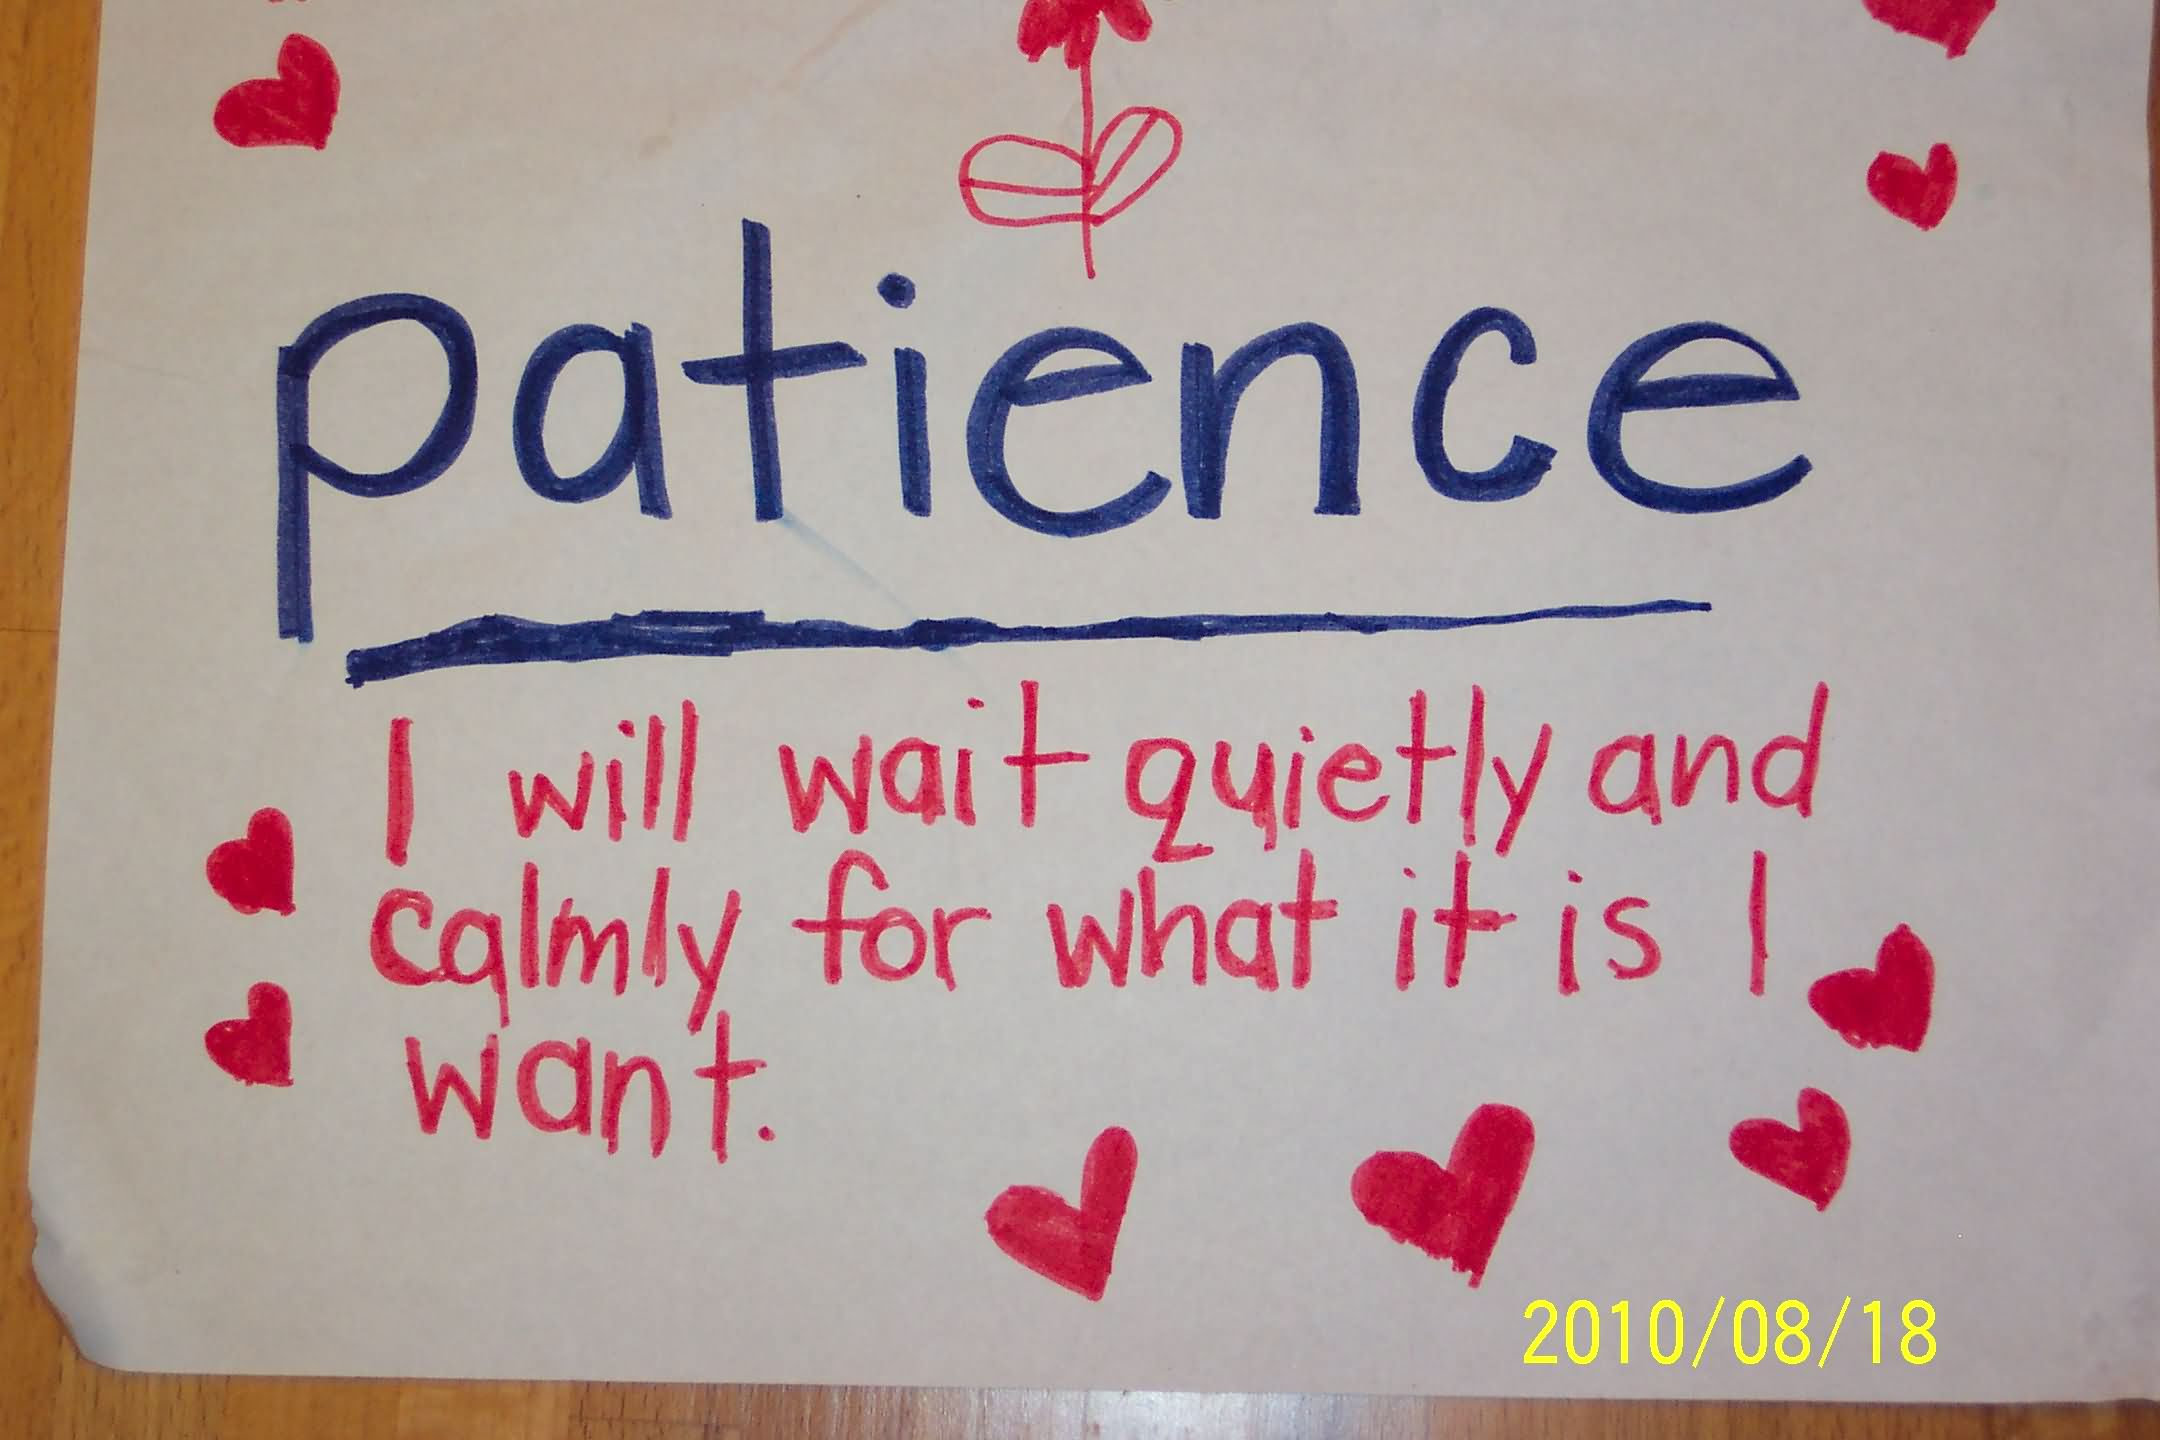 patience
I will wait quietly and
calmly for what it is I
want.
2010/08/18